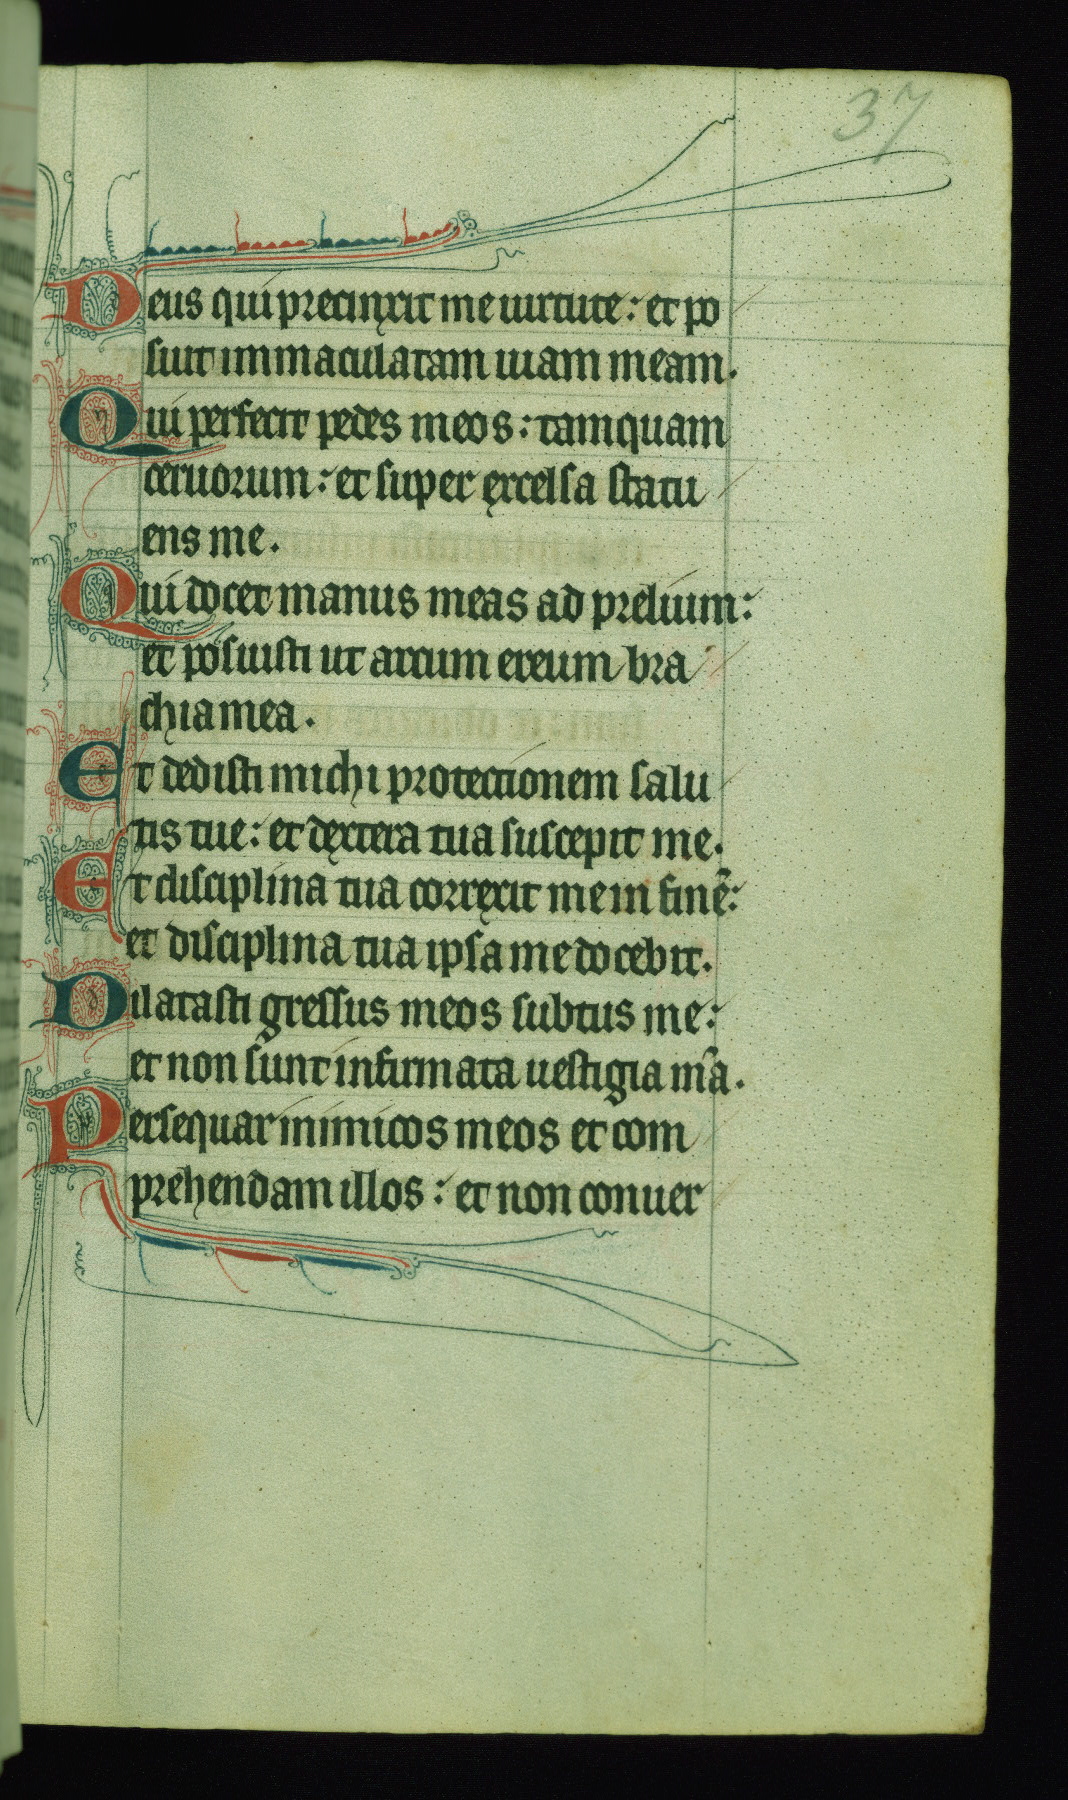 37
Deus qui precinxit me uirtute: et po
suit immaculatam uiam meam.
Qui perfecit pedes meos: tamquam
ceruorum: et super excelsa statu
ens me.
Qui docet manus meas ad prelium:
et posuisti ut arcum ereum bra
chia mea.
Et dedisti michi protectionem salu
tis tue: et dextera tua suscepit me.
Et disciplina tua correxit me in finē:
et disciplina tua ipsa me docebit.
Dilatasti gressus meos subtus me:
et non sunt infirmata uestigia m̄a.
Persequar inimicos meos et com
prehendam illos: et non conuer